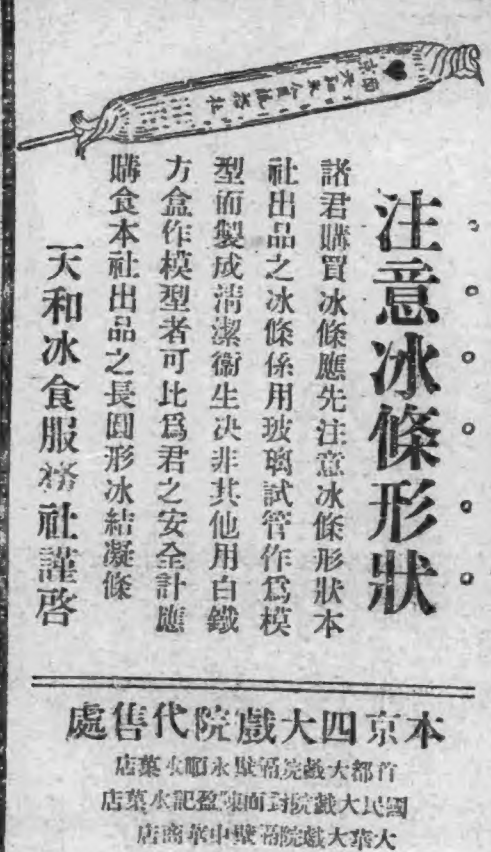 注意冰條形狀
諸君購買冰條應先注意冰條形狀本
社出品之冰條係用玻璃試管作爲模
型而製成淸潔衞生决非其他用白鐵
方盒作模型者可比爲君之安全計應
購食本社出品之長圓形冰結凝條
天和冰食服務社謹啓
本京四大戲院代售處
首都大戲院隔壁永順水菓店
國民大戲院對面陳盈記水菓店
大華大戲院隔壁中華商店